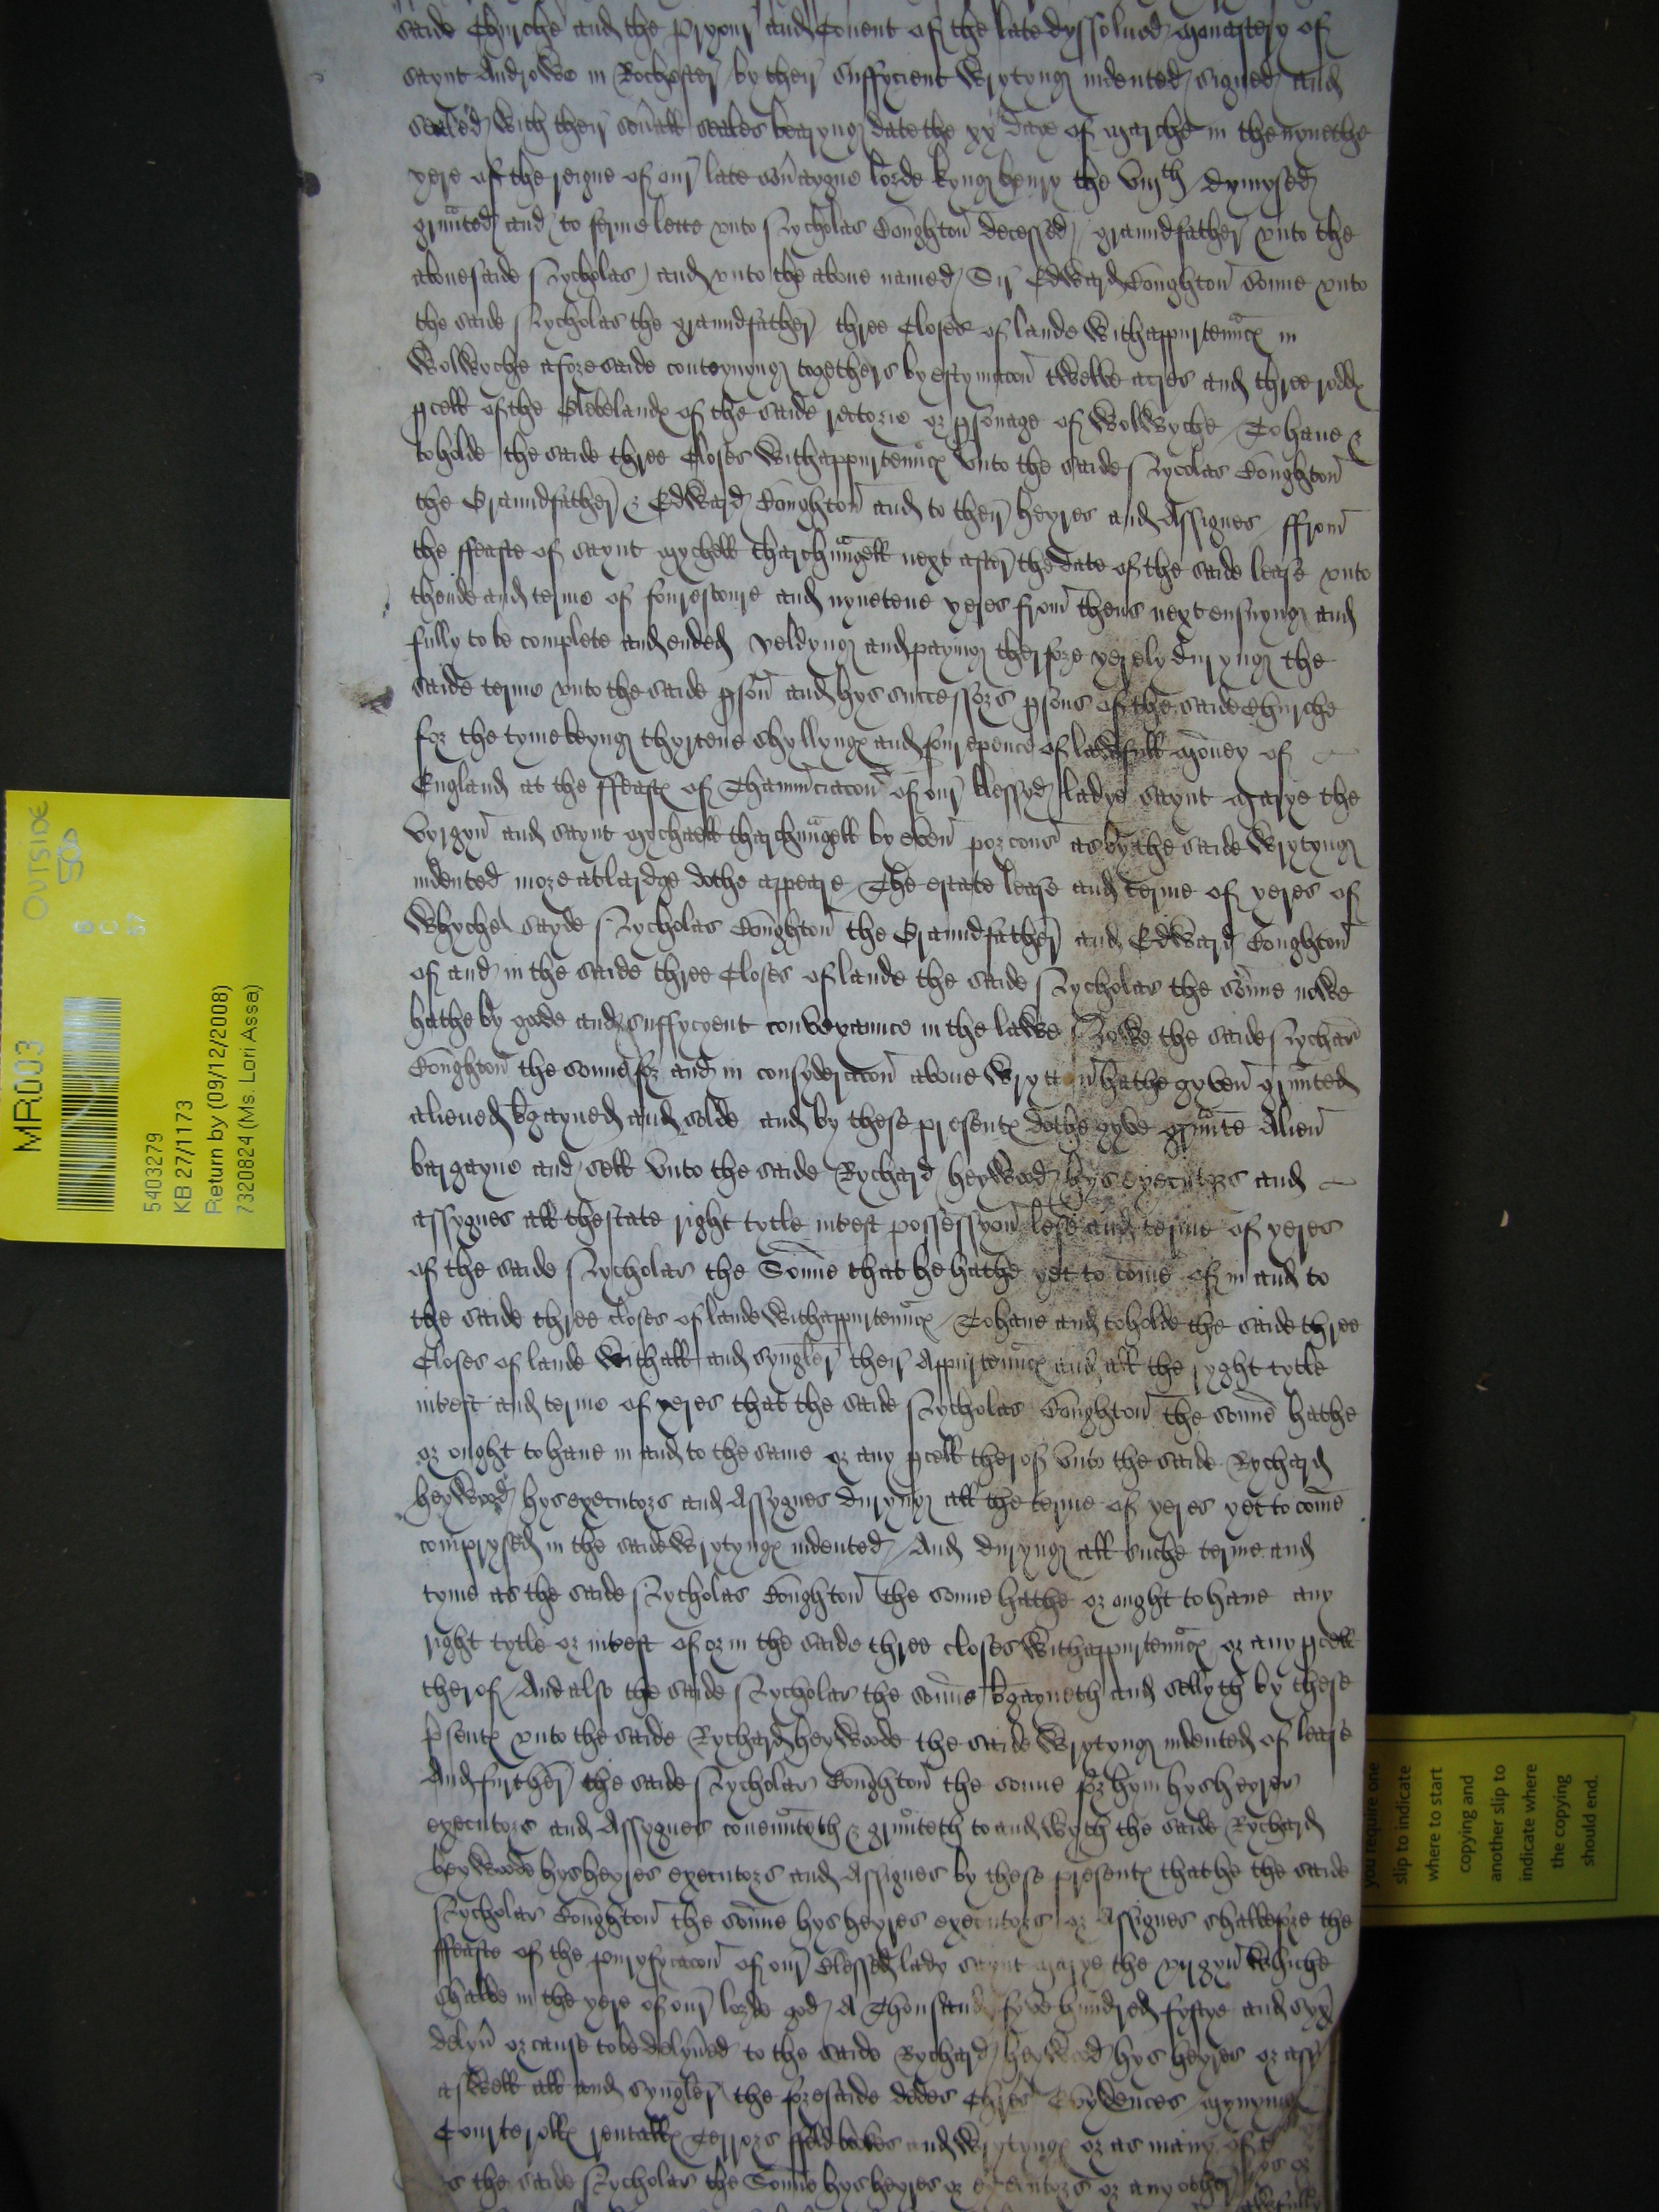 saide Churche and the pryour and Covent of the late dyssolued monastery of
saynt Androwe in Rochester by their suffycient wrytyng indented signed and
sealed with their seales bearyng date the xx daye of marche in the nynethe
yere of the reigne of our late soueraygne lorde kyng henry the viijth dymysed
graunted and to ferme lette vnto Nycholas Boughton decessed graundfather vnto the
abouesaide Nycholas and vnto the aboue named Sir Edward Boughton sonne vnto
the saide Nycholas the graundfather three Closes of lande withappurtenances in
wolwyche aforesaide conteynyng togethers by estymacon twelve acres and three rodds
pcell of the Glebelands of the saide rectorie or psonage of wolwyche To haue &
to holde the saide three Closes withappurtenances vnto the saide Nycolas Boughton
the Graundfather & Edward Boughton and to their heyres and Assignes ffrom
the ffeaste of saynt mychell tharchungell next after the date of the saide lease vnto
thende and terme of fourescoure and nynetene yeres from thens next ensuyng and
fully to be complete and ended yeldyng and payng therfore yerely duryng the
saide terme vnto the saide pson and hys successors psons of the saide Churche
for the tyme beyng thyrtene shyllyngs and fourepence of lawfull money of
England at the ffeasts of Thannuciacon of our blessyd ladye saynt marye the
vyrgyn and saynt mychaell tharchungell by even porcons as by the saide wrytyng
indented more at lardge dothe appeare The estate lease and terme of yeres of
whyche sayde Nycholas Boughton the Graundfather and Edward Boughton
of and in the saide three Closes of lande the saide Nycholas the sonne nowe
hathe by goode and suffycyent conveyaunce in the lawe Nowe the saide Nycholas
Boughton the sonne for and in consyderacon aboue wrytten hathe gyven graunted
aliened bgayned and solde and by these presents dothe gyve graunte Alien
bargayne and sell vnto the saide Rychard heywood hys executors and
assygnes all thestate right tytle interest possessyon lese and terme of yeres
of the saide Nycholas the Sonne that he hathe yet to come of in and to
the saide three closes of lande withappurtenances To haue and to holde the saide three
Closes of lande with all and syngler their Appurtenances and all the ryght tytle
interest and terme of yeres that the saide Nycholas Boughton the sonne hathe
or ought to haue in and to the same or any pcell therof vnto the saide Rychard
heywood hys executors and Assygnes duryng all the terme of yeres yet to come
comprysed in the saide wrytyngs indented And duryng all suche terme and
tyme as the saide Nycholas Boughton the sonne hathe or ought to haue any
right tytle or interest of or in the saide three closes withappurtenances or any pcell
therof And also the saide Nycholas the sonne bgayneth and sellyth by these
psents vnto the saide Rychard heywoode the saide wrytyng indented of lease
And further the saide Nycholas Boughton the sonne for hym hys heyres
executors and Assygnes couenuteth & grunteth to and wyth the saide Rychard
heywoode hys heyres executors and Assignes by these presents that he the saide
Nycholas Boughton the sonne hys heyres executors or Assignes shall before the
ffeaste of the puryfycacon of our blessed lady saynt marye the vyrgyn whiche
shalbe in the yere of our lorde god A Thousand fyve hundred fystye and syx
delyuer or cause to be delyuered to the saide Rychard heywood hys heyres or
aswell all and syngler the foresaide dedes Chres Evydences mynyments
Courterolls rentalls Terrors ffeld bookes and wrytyngs or as many of
as the saide Nycholas the Sonne hys heyres or executors or any other
MR003
OUTSIDE
500
5403279
KB 27/1173
Return by (09/12/2008)
7320824 (Ms. Lori Assa)
you require one
slip to indicate
where to start
copying and
another slip to
indicate where
the copying
should end.